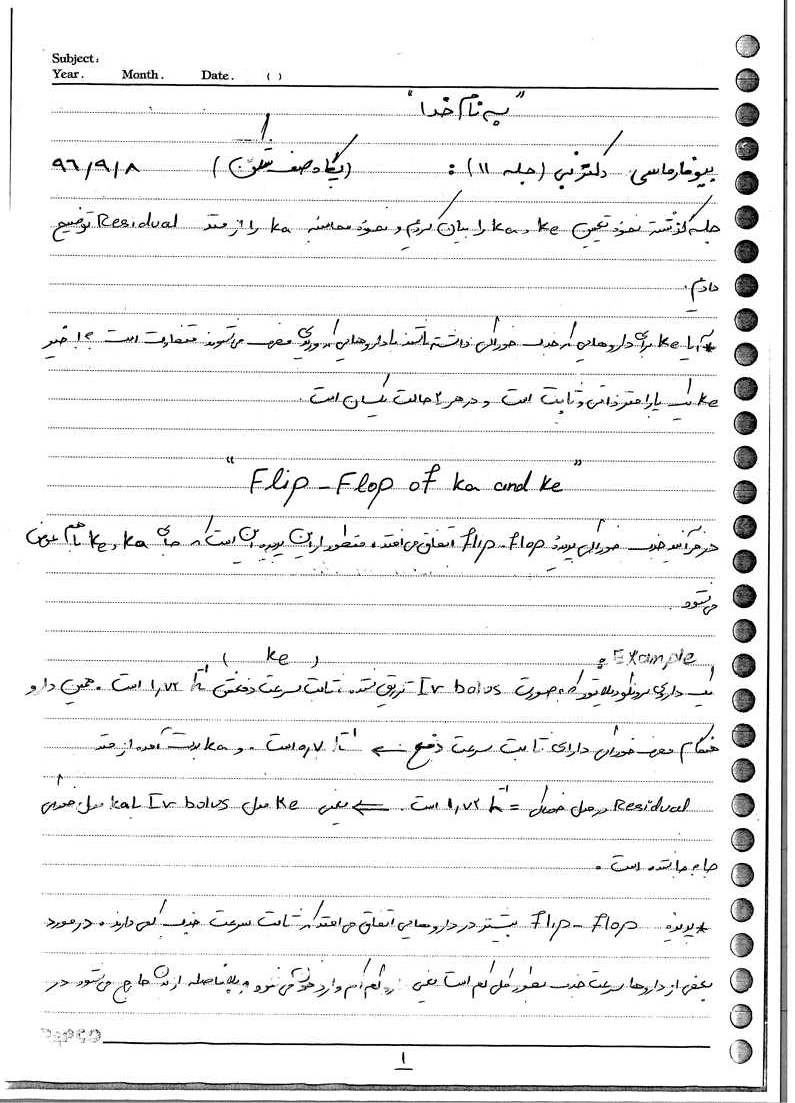 Subject:
Year. Month. Date. ( )
"به نام خدا"
بیوفارماسی دکتر نبی (جلسه ۱۱) : (پگاه صف شکن) ۹۶/۹/۸
جلسه گذشته نحوه تعیین ke و ka را بیان کردیم و نحوه محاسبه ka را از متد Residual توضیح
دادیم.
*آیا ke برای داروهایی که جذب خوراکی داشته باشند با داروهایی که وریدی مصرف می‌شوند متفاوت است ؟! خیر
ke یک پارامتر ذاتی و ثابت است و در هر ۲ حالت یکسان است.
"Flip-Flop of ka and ke"
در فرآیند جذب خوراکی پدیدهٔ flip-flop اتفاق می‌افتد، منظور از این پدیده این است که جای ke و ka با هم عوض
می‌شود.
Example :
یک داروی برونکودیلاتور که به صورت Iv bolus تزریق شده، ثابت سرعت دفعش (ke) ۱,۷۲ h⁻¹ است. همین دارو
هنگام مصرف خوراکی دارای ثابت سرعت دفع ← ۰,۷ h⁻¹ است. و ka بدست آمده از متد
Residual در مدل خوراکی = ۱,۷۲ h⁻¹ است. ⇐ یعنی ke مدل Iv bolus با ka مدل خوراکی
جا به جا شده است.
*پدیده flip-flop بیشتر در داروهایی اتفاق می‌افتد که ثابت سرعت جذب کمی دارند. در مورد
بعضی از داروها سرعت جذب بطور کل کم است یعنی دارو کم کم وارد خون می‌شود و بلافاصله از آن خارج می‌شود در
PAPCO
۱